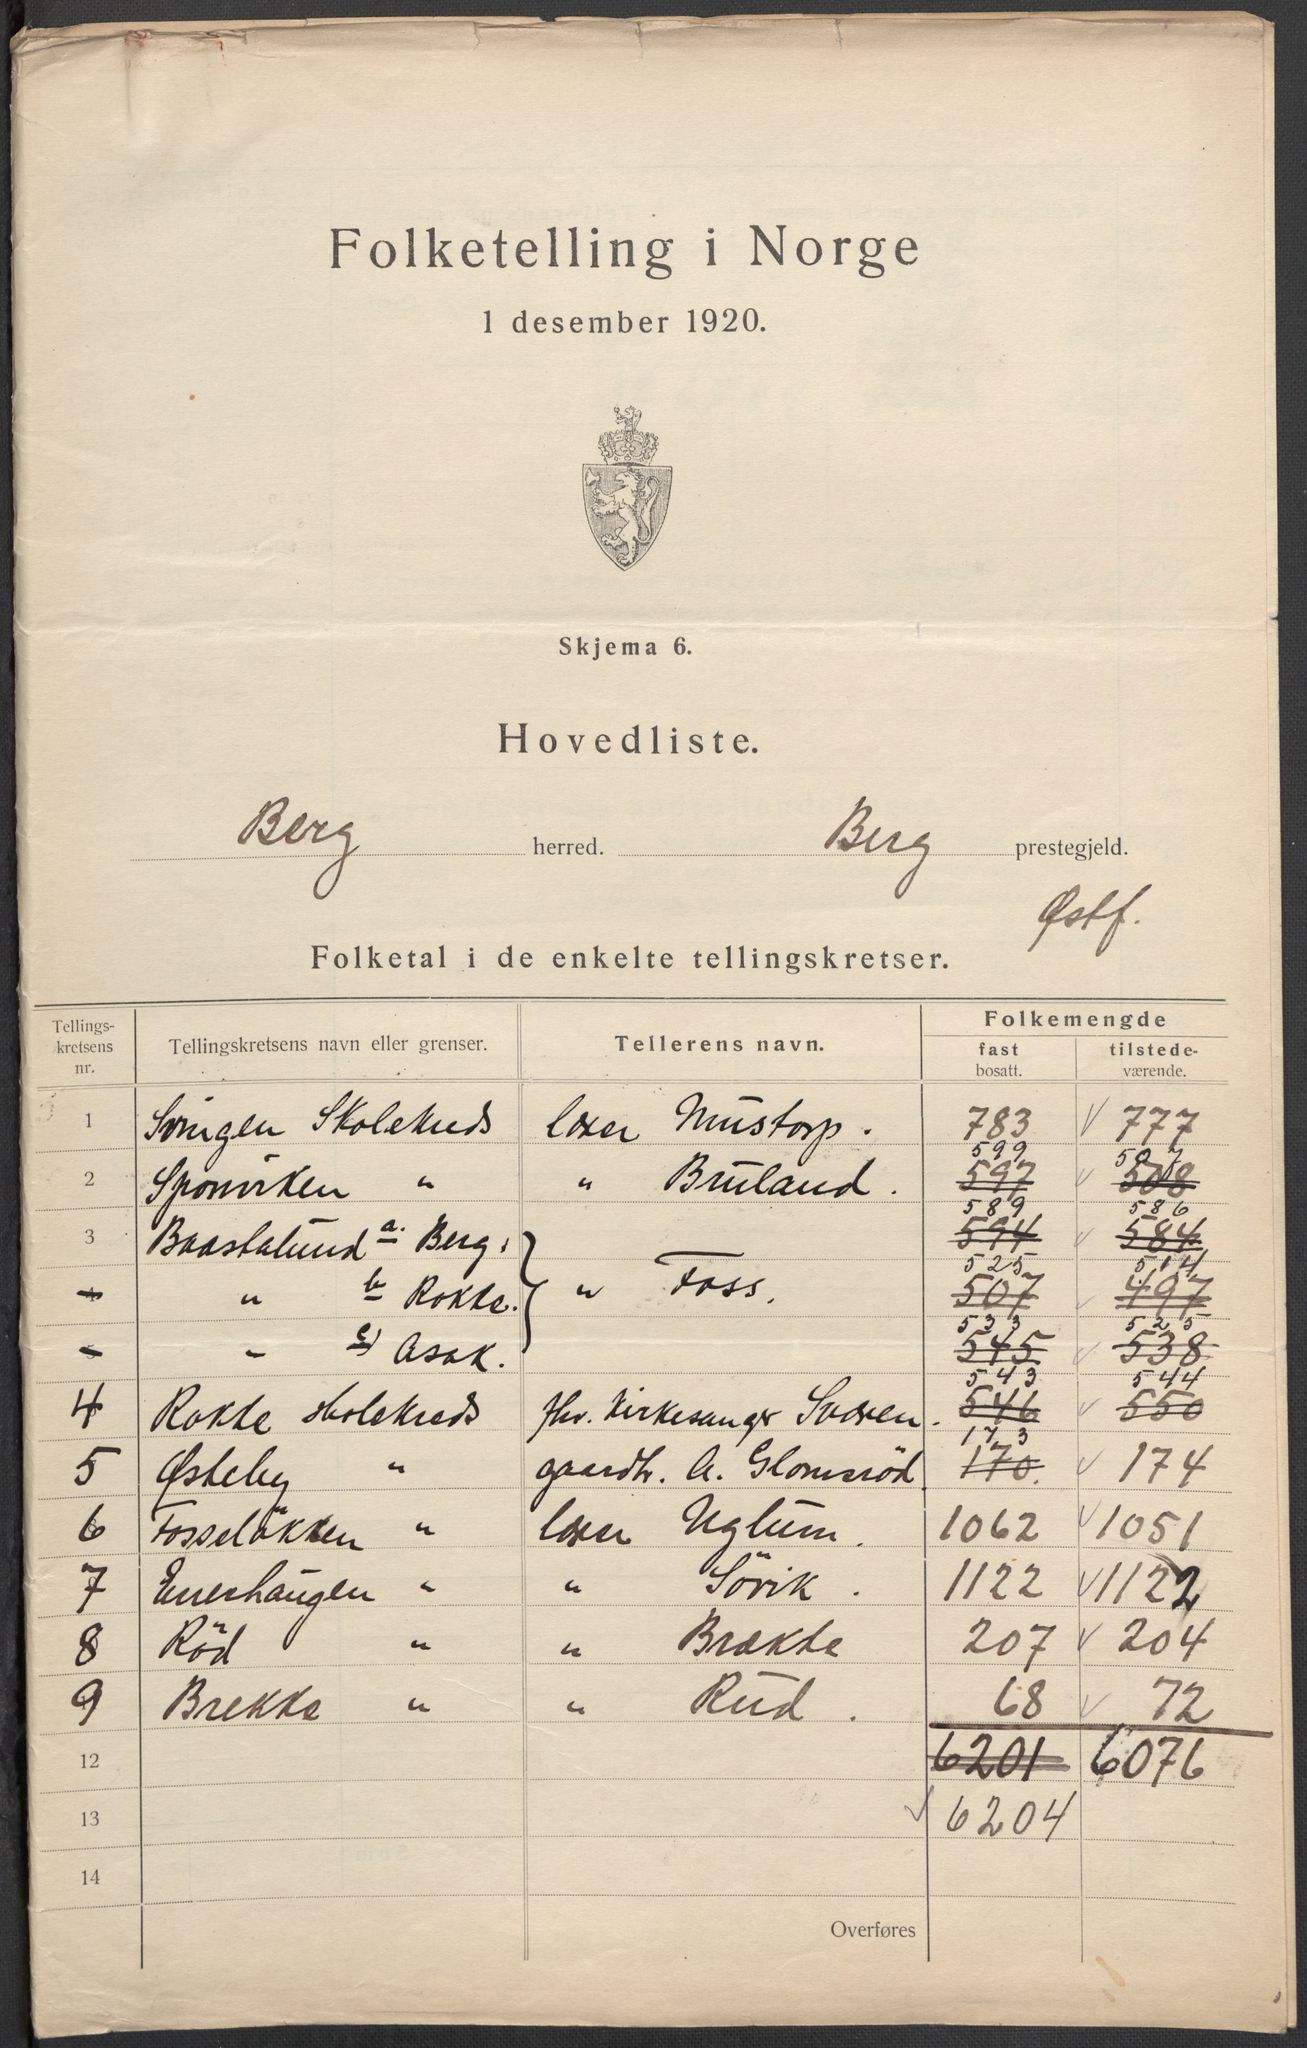 Folketelling i Norge
1 desember 1920.
Skjema 6.
Hovedliste.
Berg herred. Berg prestegjeld.
Østf.
Folketal i de enkelte tellingskretser.
Tellings-kretsens nr. Tellingskretsens navn eller grenser. Tellerens navn. Folkemengde fast bosatt. tilstede-værende.
1 Svingen Skolekreds lærer Mustorp. 783 777
599 507
2 Sponviken " " Bruland. 597 508
589 586
3 Baastalund a. Berg. 594 584
525 514
" b Rokke. " Foss. 507 497
533 525
" c) Asak. 545 538
543 544
4 Rokke skolekreds fhv. Kirkesanger Sværen. 546 550
173
5 Østeby " gaardbr. A. Glomsröd 170. 174
6 Fosseløkken " lærer Uglum. 1062 1051
7 Enerhaugen " " Sörvik. 1122 1122
8 Röd " " Brække 207 204
9 Brekke " " Rud. 68 72
12 6201 6076
13 6204
14
Overføres